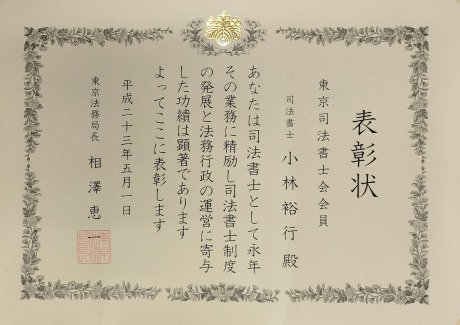 表彰状
東京司法書士会会員
司法書士 小林裕行 殿
あなたは司法書士として永年
その業務に精励し司法書士制度
の発展と法務行政の運営に寄与
した功績は顕著であります
よってここに表彰します
平成二十三年五月一日
東京法務局長 相澤恵一